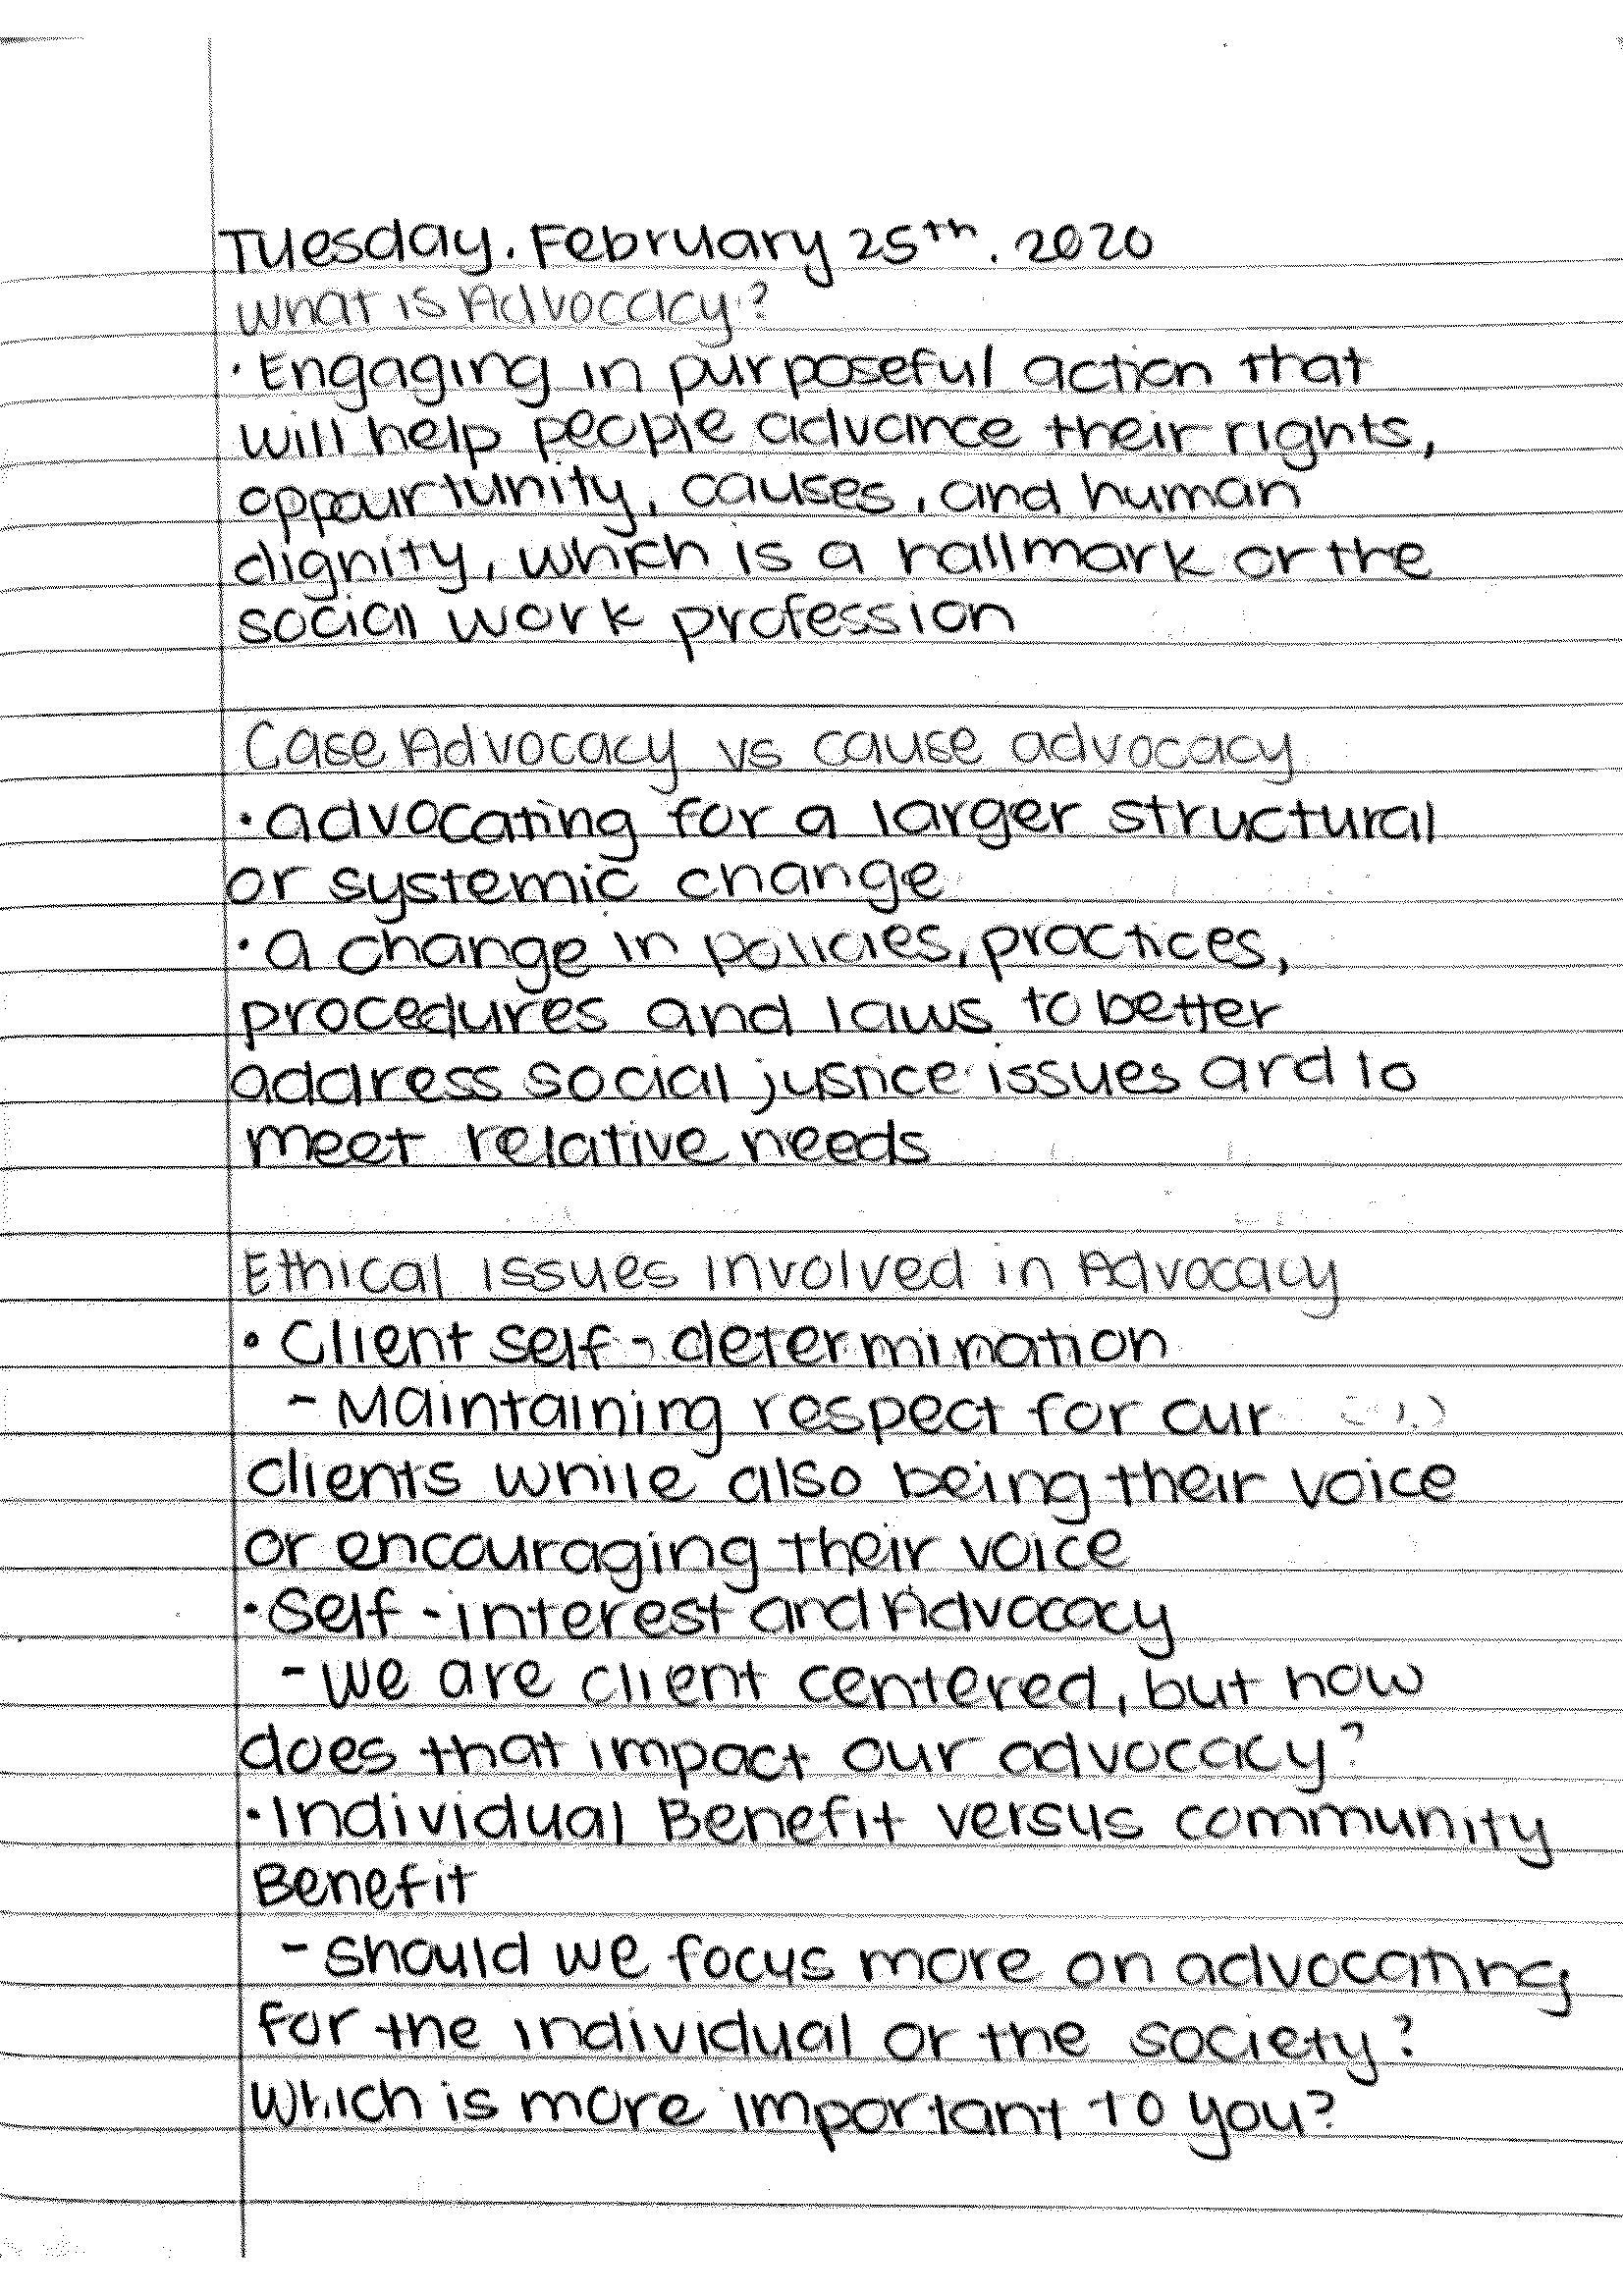 Tuesday. February 25th. 2020
What is Advocacy?
· Engaging in purposeful action that
will help people advance their rights,
oppourtunity, causes, and human
dignity, which is a hallmark or the
social work profession
Case Advocacy vs cause advocacy
· advocating for a larger structural
or systemic change
· a change in policies, practices,
procedures and laws to better
address social justice issues and to
meet relative needs
Ethical issues involved in Advocacy
· Client self-determination
- Maintaining respect for our
clients while also being their voice
or encouraging their voice
· Self-interest and Advocacy
- We are client centered, but how
does that impact our advocacy?
· Individual Benefit versus community
Benefit
- Should we focus more on advocating
for the individual or the society?
Which is more important to you?